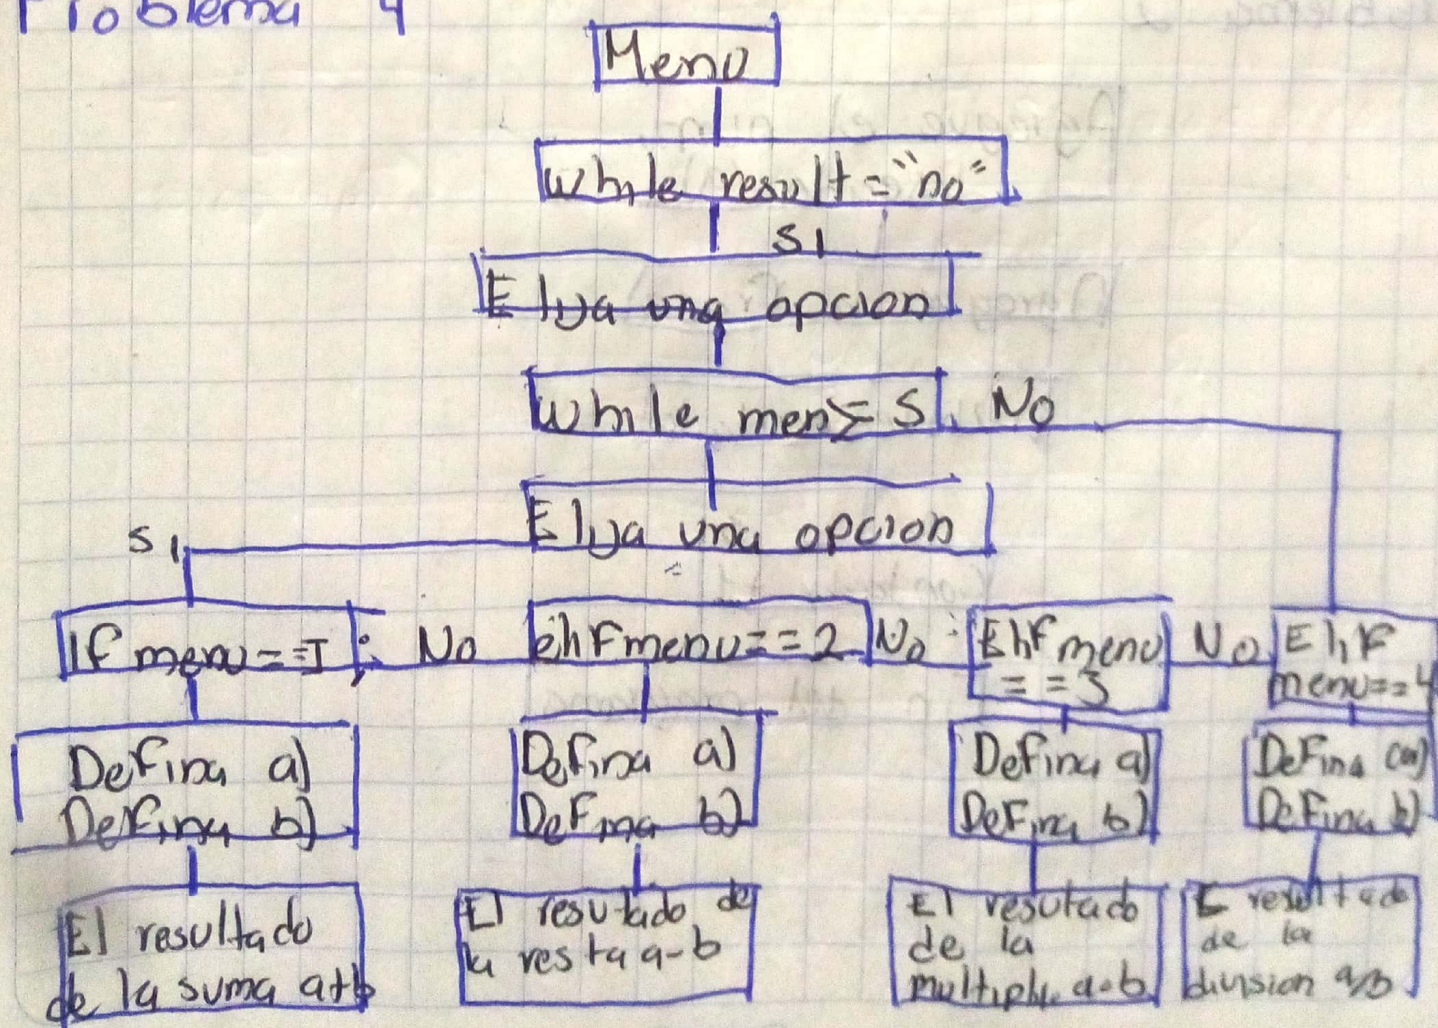 Problema 4
Menu
while result = "no"
SI
Elija una opcion
while men>= 5 No
Elija una opcion
SI
If menu==1; No elif menu==2 No Elif menu No Elif
==3 menu==4
Defina a) Defina a) Defina a) Defina a)
Defina b) Defina b) Defina b) Defina b)
El resultado El resutado de El resutado E resultado
de la suma a+b la resta a-b de la de la
multiplic a*b division a/b